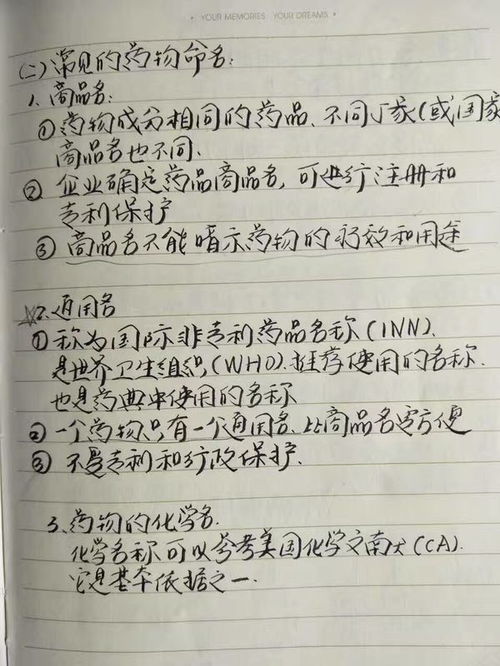 · YOUR MEMORIES YOUR DREAMS ·
(二)常见的药物命名:
1、商品名:
①药物成分相同的药品、不同厂家(或国家
商品名也不同.
② 企业确定药品商品名,可进行注册和
专利保护
③ 商品名不能暗示药物的疗效和用途
☆2.通用名
①称为国际非专利药品名称(INN).
是世界卫生组织(WHO).推荐使用的名称.
也是药典中使用的名称
② 一个药物只有一个通用名、比商品名更方便
③ 不受专利和行政保护.
3、药物的化学名.
化学名称可以参考美国化学文献(CA).
它是基本依据之一.